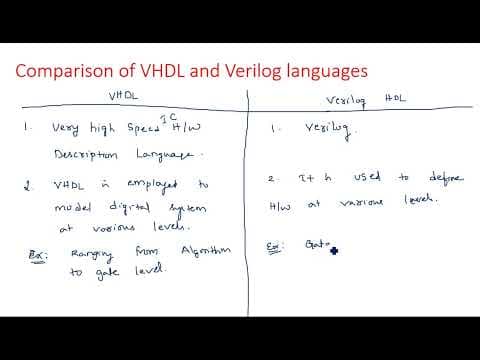 Comparison of VHDL and Verilog languages
VHDL
1. Very high Speed IC H/W
Description Language.
2. VHDL is employed to
model digital system
at various levels.
Ex: Ranging from Algorithm
to gate level.
Verilog HDL
1. Verilog.
2. It is used to define
H/W at various levels.
Ex: Gate